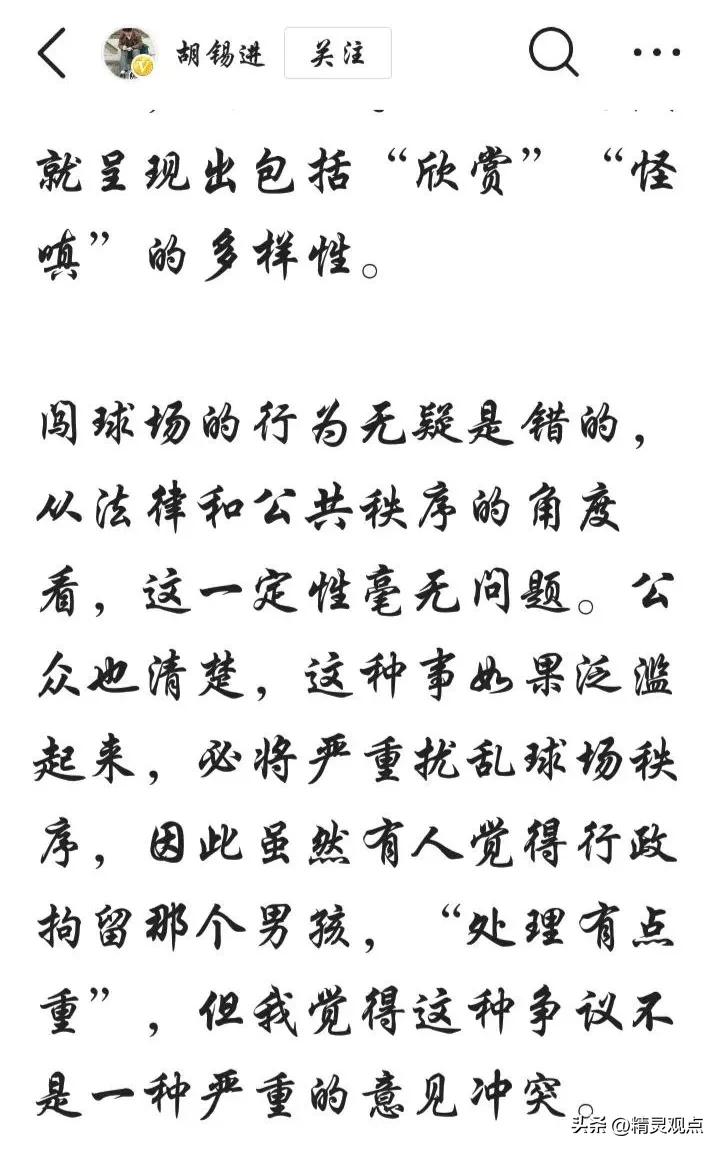 胡锡进 关注
就呈现出包括“欣赏”“怪
嗔”的多样性。
闯球场的行为无疑是错的，
从法律和公共秩序的角度
看，这一定性毫无问题。公
众也清楚，这种事如果泛滥
起来，必将严重扰乱球场秩
序，因此虽然有人觉得行政
拘留那个男孩，“处理有点
重”，但我觉得这种争议不
是一种严重的意见冲突。
头条 @精灵观点